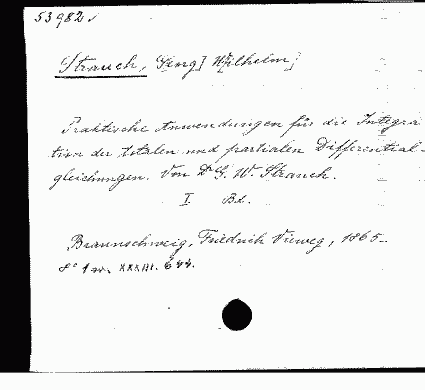 53982
Strauch, Georg] W[ilhelm]
Praktische Anwendungen für die Integra
tion der totalen und partialen Differential-
gleichungen. Von Dr G. W. Strauch.
I. Bd.
Braunschweig, Friedrich Vieweg, 1865.
8° XXXIII. 644.